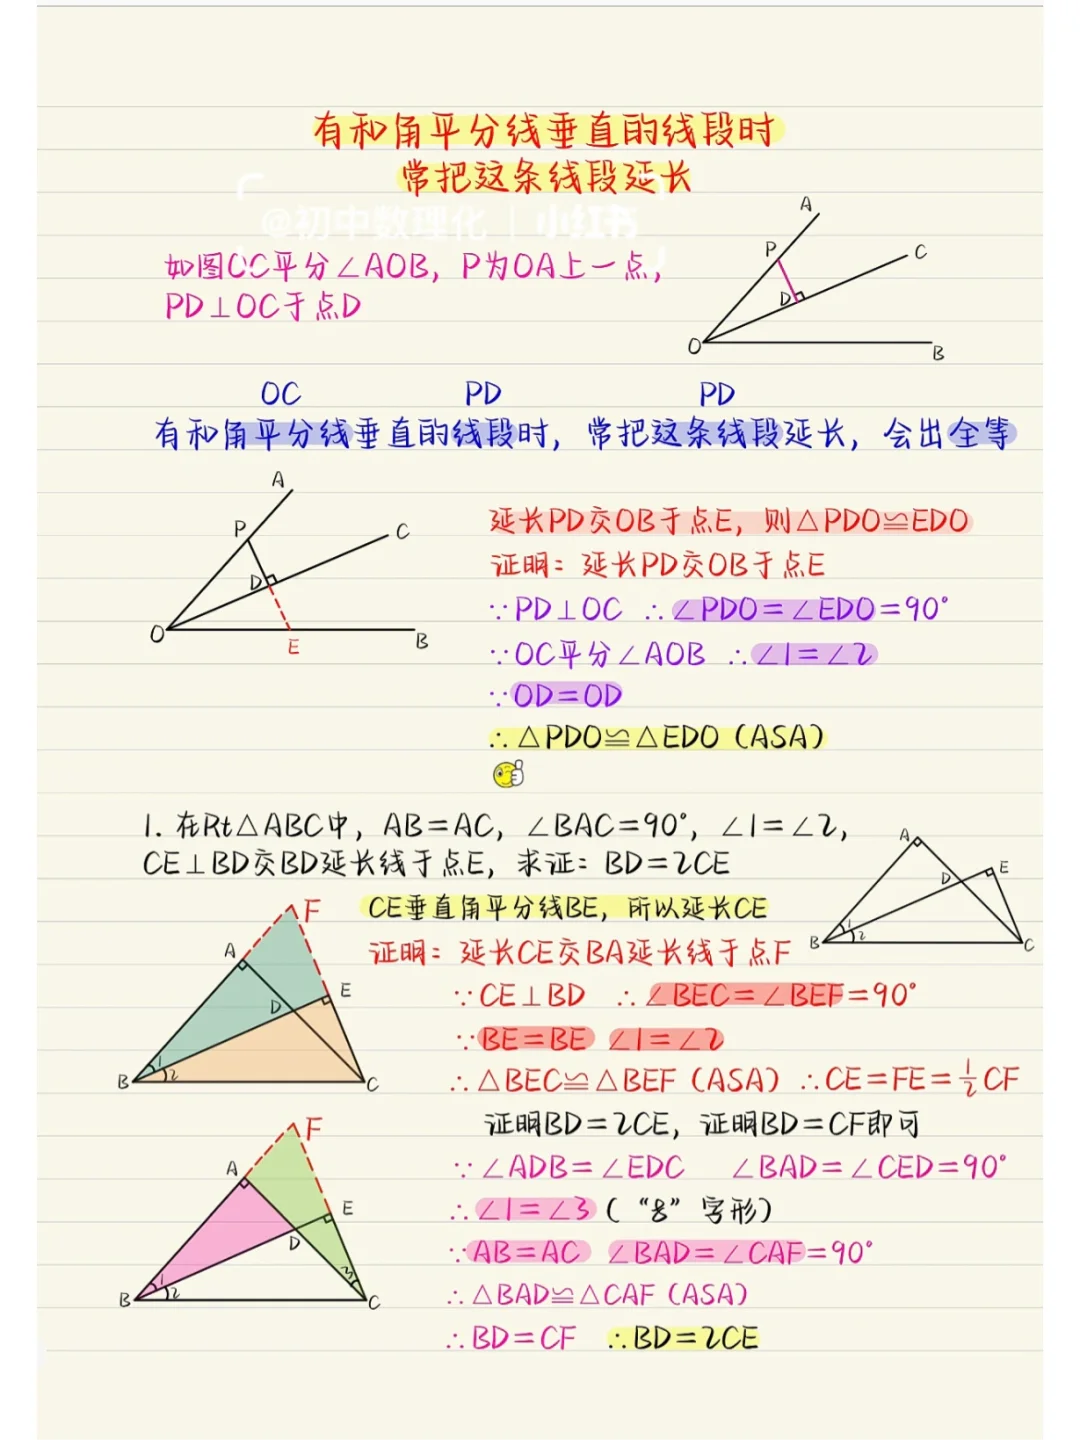 有和角平分线垂直的线段时
常把这条线段延长
@初中数理化 | 小红书
如图OC平分∠AOB，P为OA上一点，
PD⊥OC于点D
A
P
C
D
O
B
OC PD PD
有和角平分线垂直的线段时，常把这条线段延长，会出全等
A
P
C
D
O
E
B
延长PD交OB于点E，则△PDO≌EDO
证明：延长PD交OB于点E
∵PD⊥OC ∴∠PDO=∠EDO=90°
∵OC平分∠AOB ∴∠1=∠2
∵OD=OD
∴△PDO≌△EDO（ASA）
1. 在Rt△ABC中，AB=AC，∠BAC=90°，∠1=∠2，
CE⊥BD交BD延长线于点E，求证：BD=2CE
A
D
E
B
1
2
C
CE垂直角平分线BE，所以延长CE
证明：延长CE交BA延长线于点F
∵CE⊥BD ∴∠BEC=∠BEF=90°
∵BE=BE ∠1=∠2
∴△BEC≌△BEF（ASA）∴CE=FE=½CF
F
A
E
D
B
1
2
C
证明BD=2CE，证明BD=CF即可
∵∠ADB=∠EDC ∠BAD=∠CED=90°
∴∠1=∠3（“8”字形）
∵AB=AC ∠BAD=∠CAF=90°
∴△BAD≌△CAF（ASA）
∴BD=CF ∴BD=2CE
F
A
E
D
B
1
2
3
C